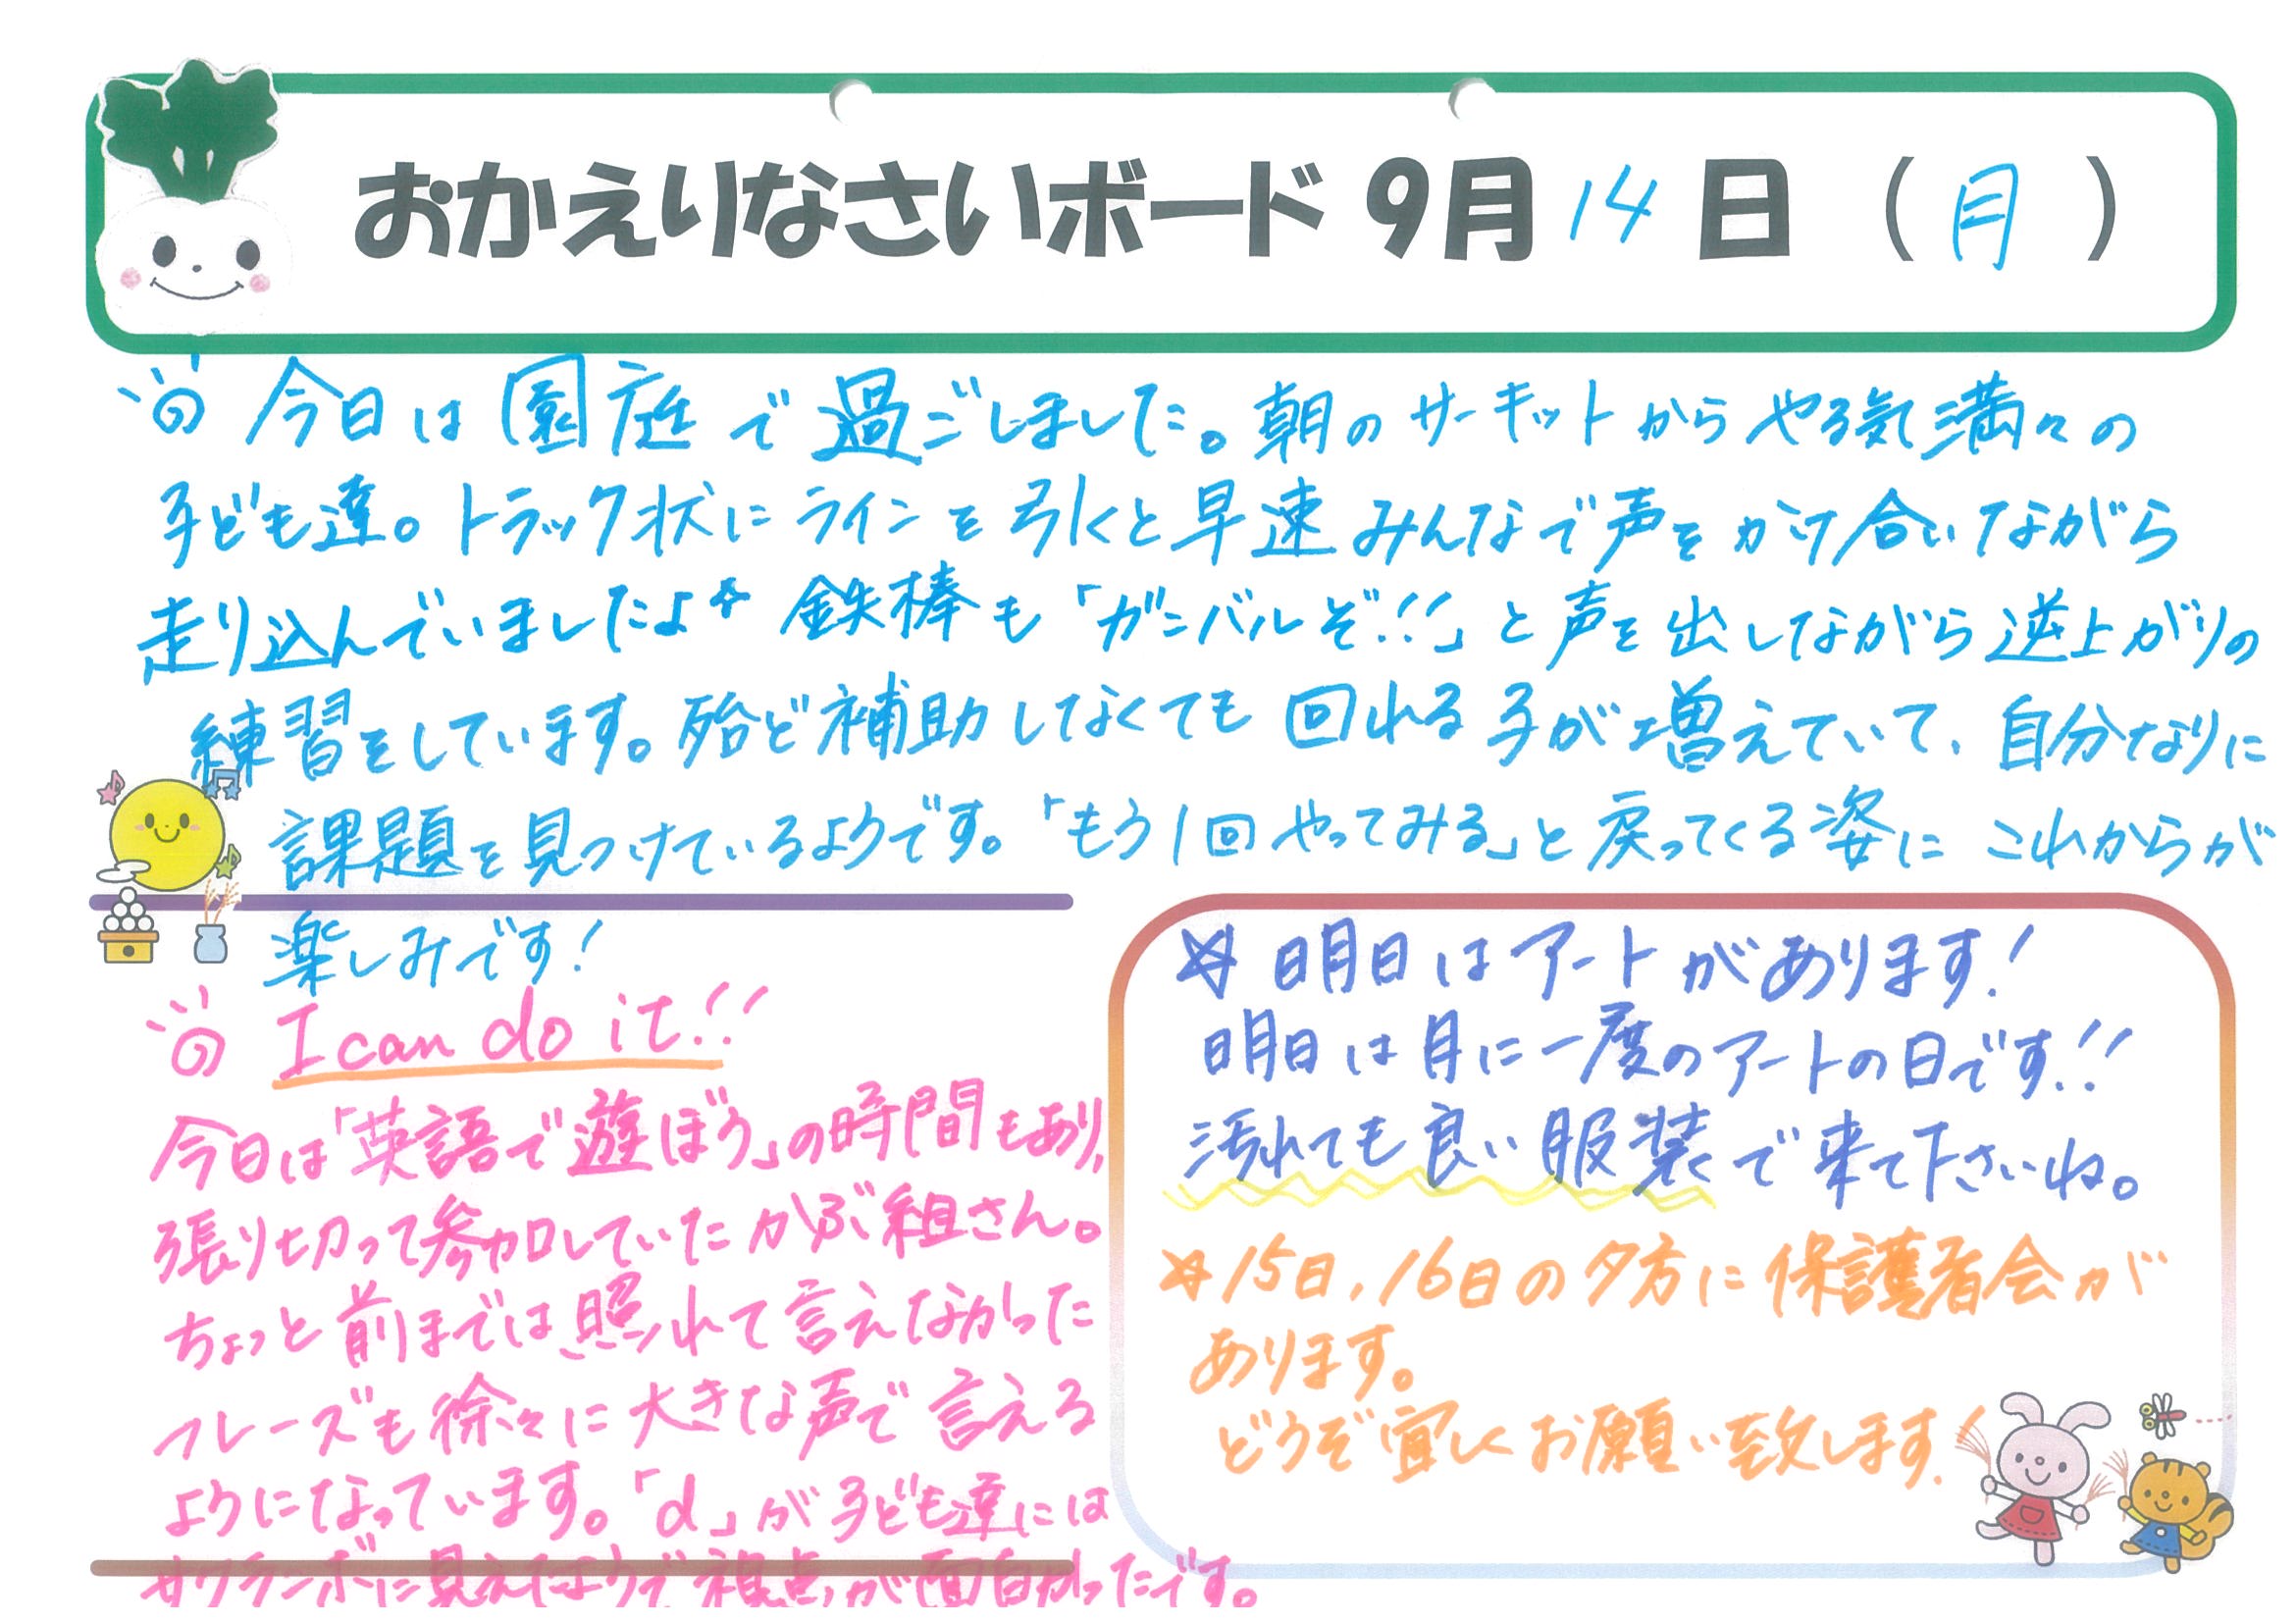 おかえりなさいボード 9月14日(月)
今日は園庭で過ごしました。朝のサーキットからやる気満々の
子ども達。トラック状にラインを引くと早速みんなで声をかけ合いながら
走り込んでいましたよ☆ 鉄棒も「ガンバルぞ!!」と声を出しながら逆上がりの
練習をしています。殆ど補助しなくても回れる子が増えていて、自分なりに
課題を見つけているようです。「もう1回やってみる」と戻ってくる姿にこれからが
楽しみです!
I can do it!!
今日は「英語で遊ぼう」の時間もあり、
張り切って参加していたかぶ組さん。
ちょっと前までは、照れて言えなかった
フレーズも徐々に大きな声で言える
ようになっています。「d」が子ども達には
サクランボに見えたようで視点が面白かったです。
☆明日はアートがあります!
明日は月に一度のアートの日です!!
汚れても良い服装で来て下さいね。
☆15日,16日の夕方に保護者会が
あります。
どうぞ宜しくお願い致します!